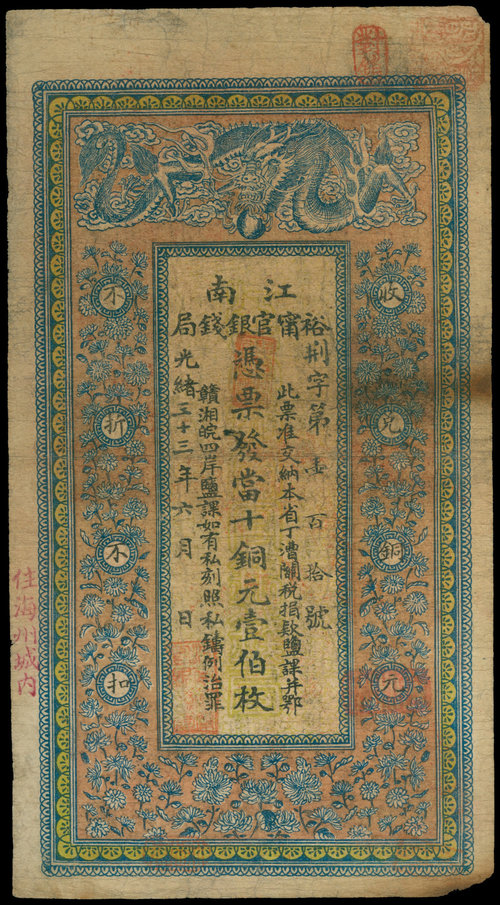 江南
裕甯官銀錢局
荆字第壹百拾號
此票准交納本省丁漕關稅捐欵鹽課并鄂
憑票發當十銅元壹伯枚
贛湘皖四岸鹽課如有私刻照私鑄例治罪
光緒三十三年六月 日
收兌銅元
不折不扣
住海州城內